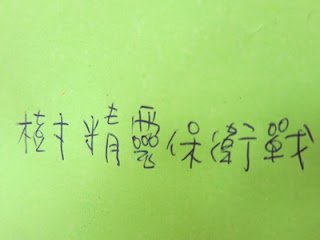 樹精靈保衛戰